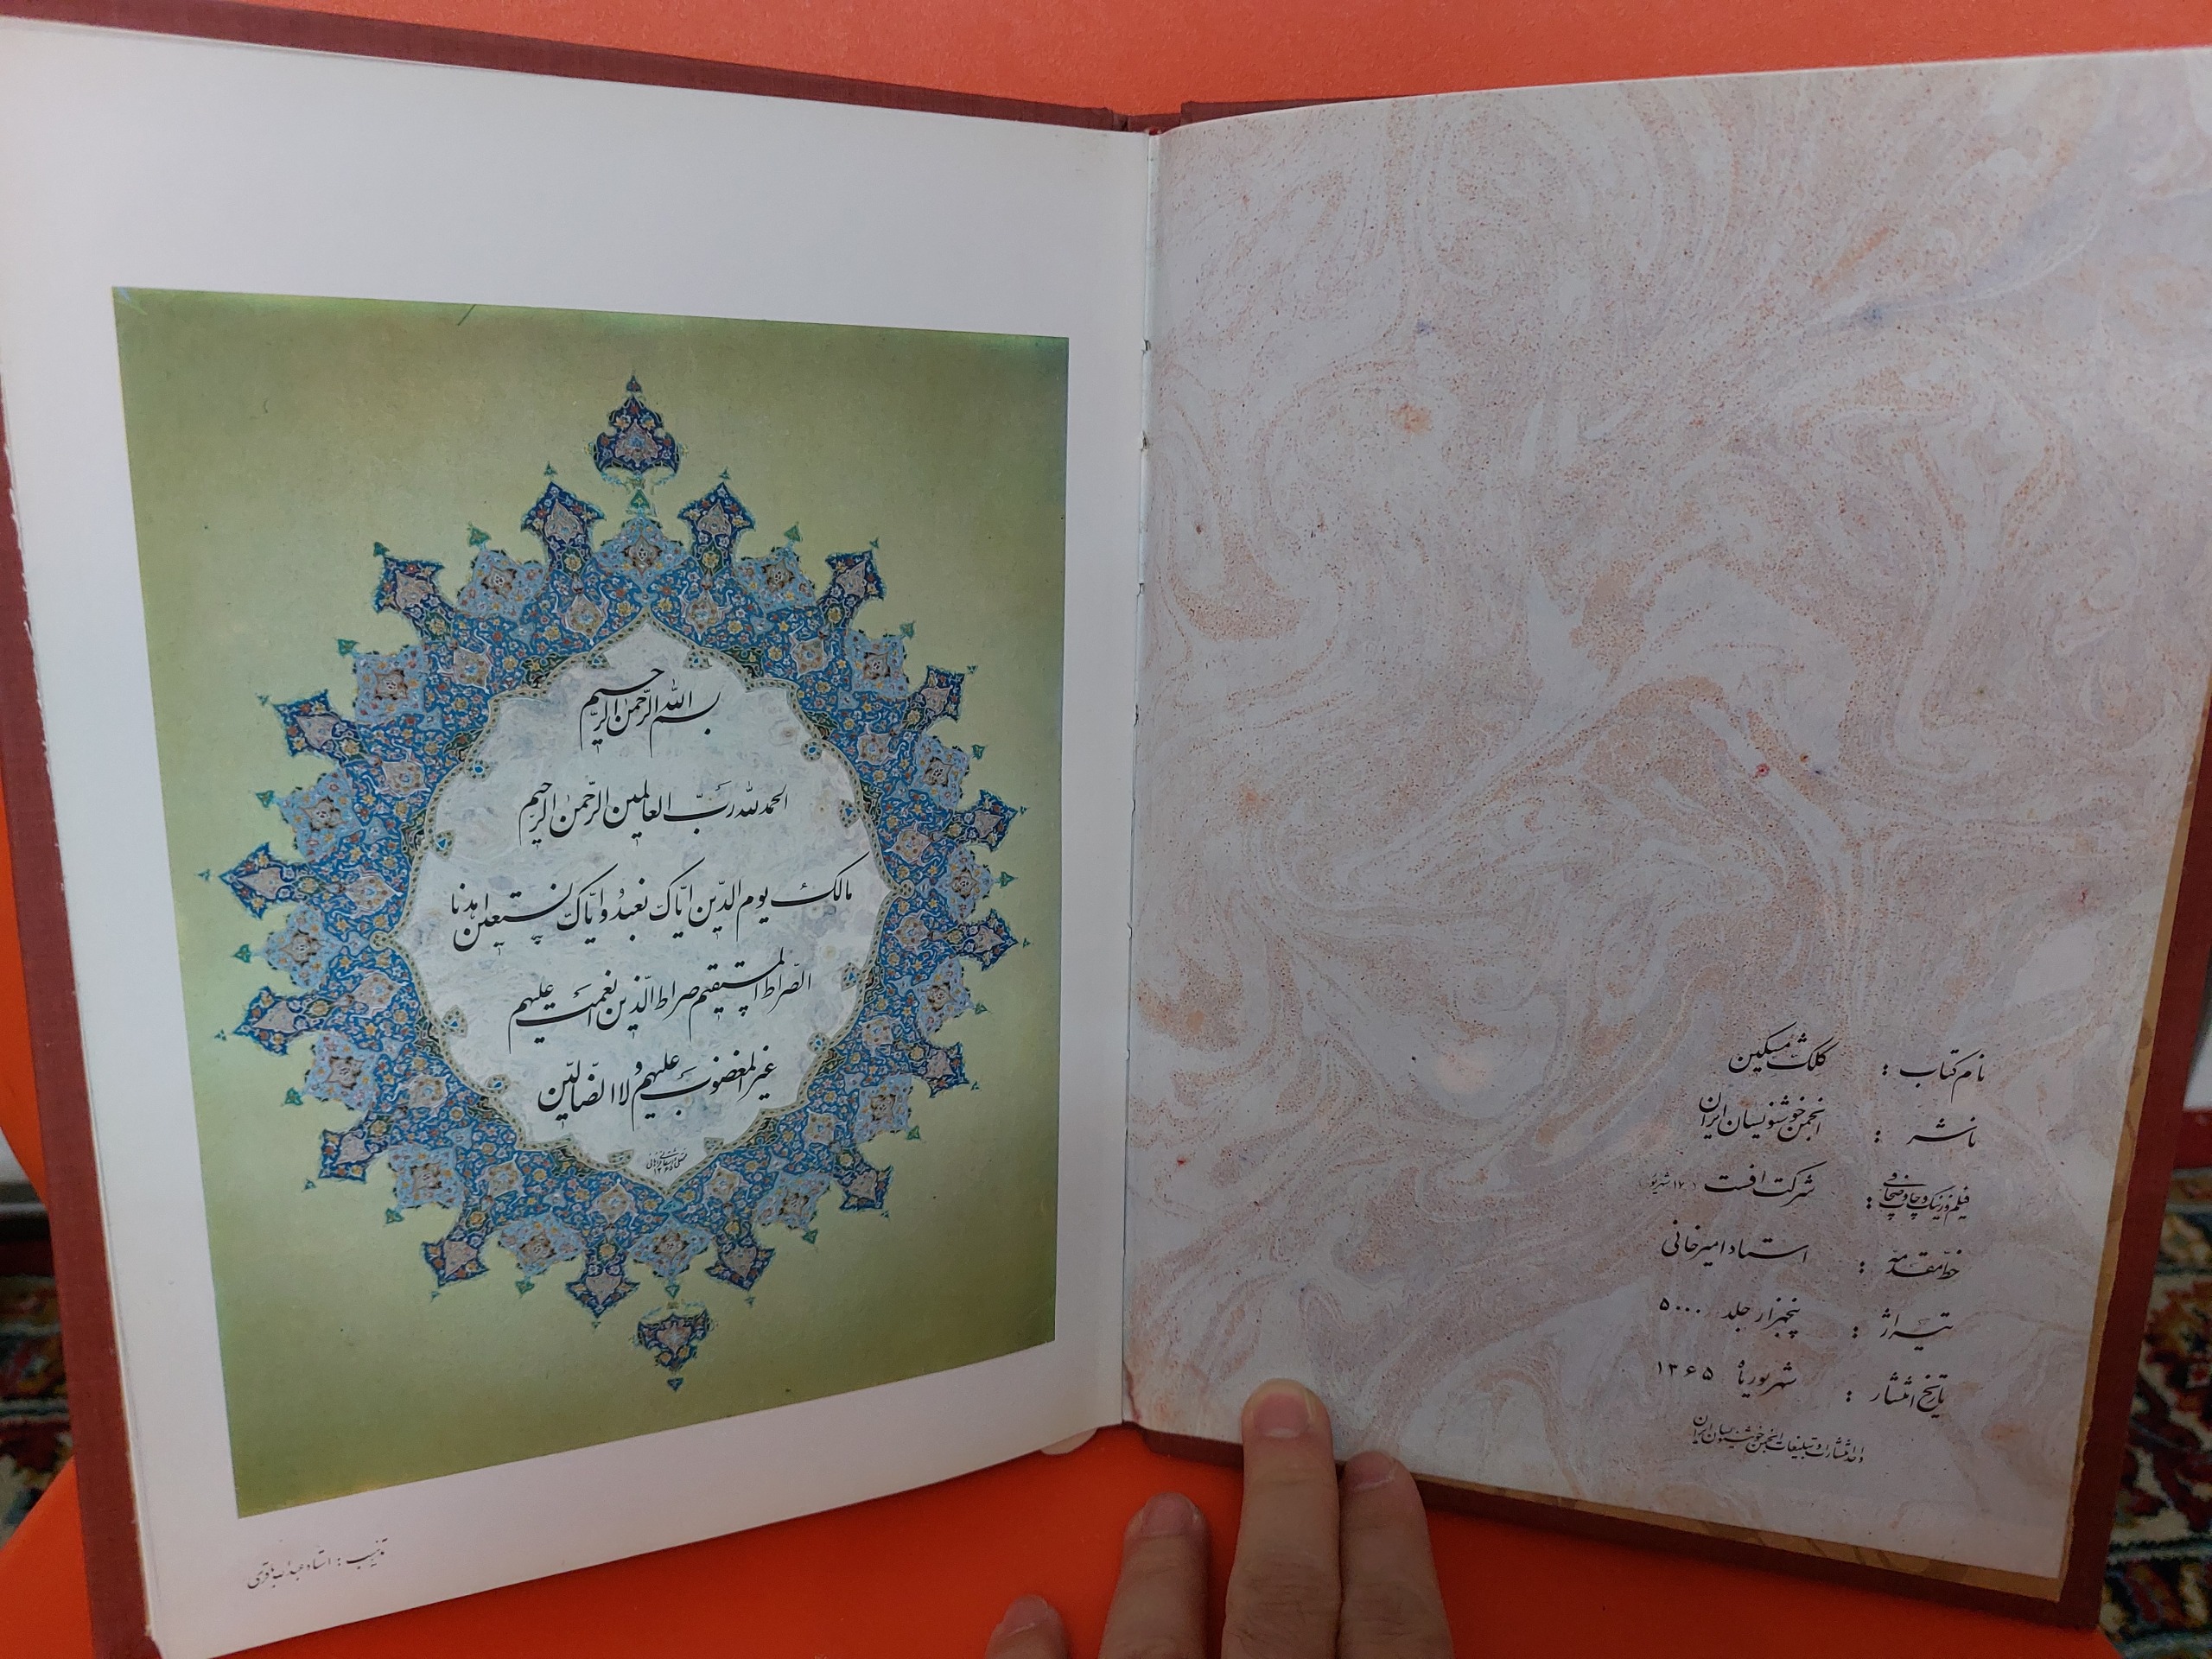 بسم الله الرّحمن الرّحيم
الحمد لله ربّ العالمين الرّحمن الرّحيم
مالك يوم الدّين ايّاك نعبد و ايّاك نستعين اهدنا
الصّراط المستقيم صراط الّذين انعمت عليهم
غير المغضوب عليهم و لا الضّالّين
تذهیب : استاد عبدالله باقری
نام کتاب : کلک مشکین
ناشر : انجمن خوشنویسان ایران
فیلم و زینک و چاپ و صحافی : شرکت افست ( ۱۷ شهریور )
خط مقدمه : استاد امیرخانی
تیراژ : پنجهزار جلد ۵۰۰۰
تاریخ انتشار : شهریور ماه ۱۳۶۵
واحد انتشارات و تبلیغات انجمن خوشنویسان ایران